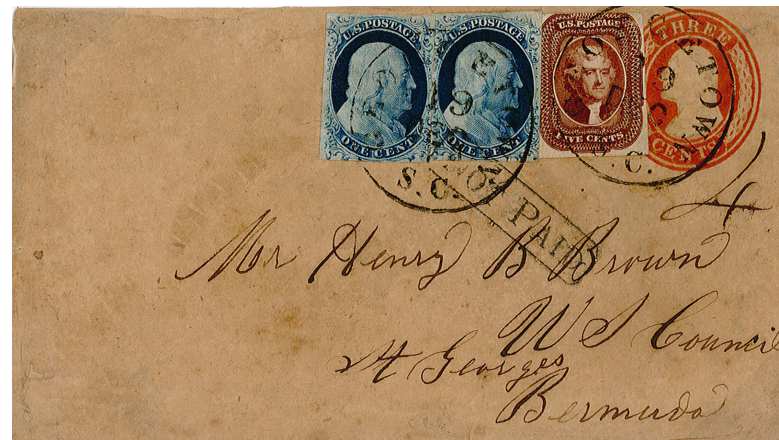 U.S. POSTAGE
ONE CENT
U.S. POSTAGE
ONE CENT
U.S. POSTAGE
FIVE CENTS
THREE
CENTS
GEORGETOWN
S.C.
GEORGETOWN
S.C.
PAID
4
Mr Henry B Brown
W S Council
St Georges
Bermuda